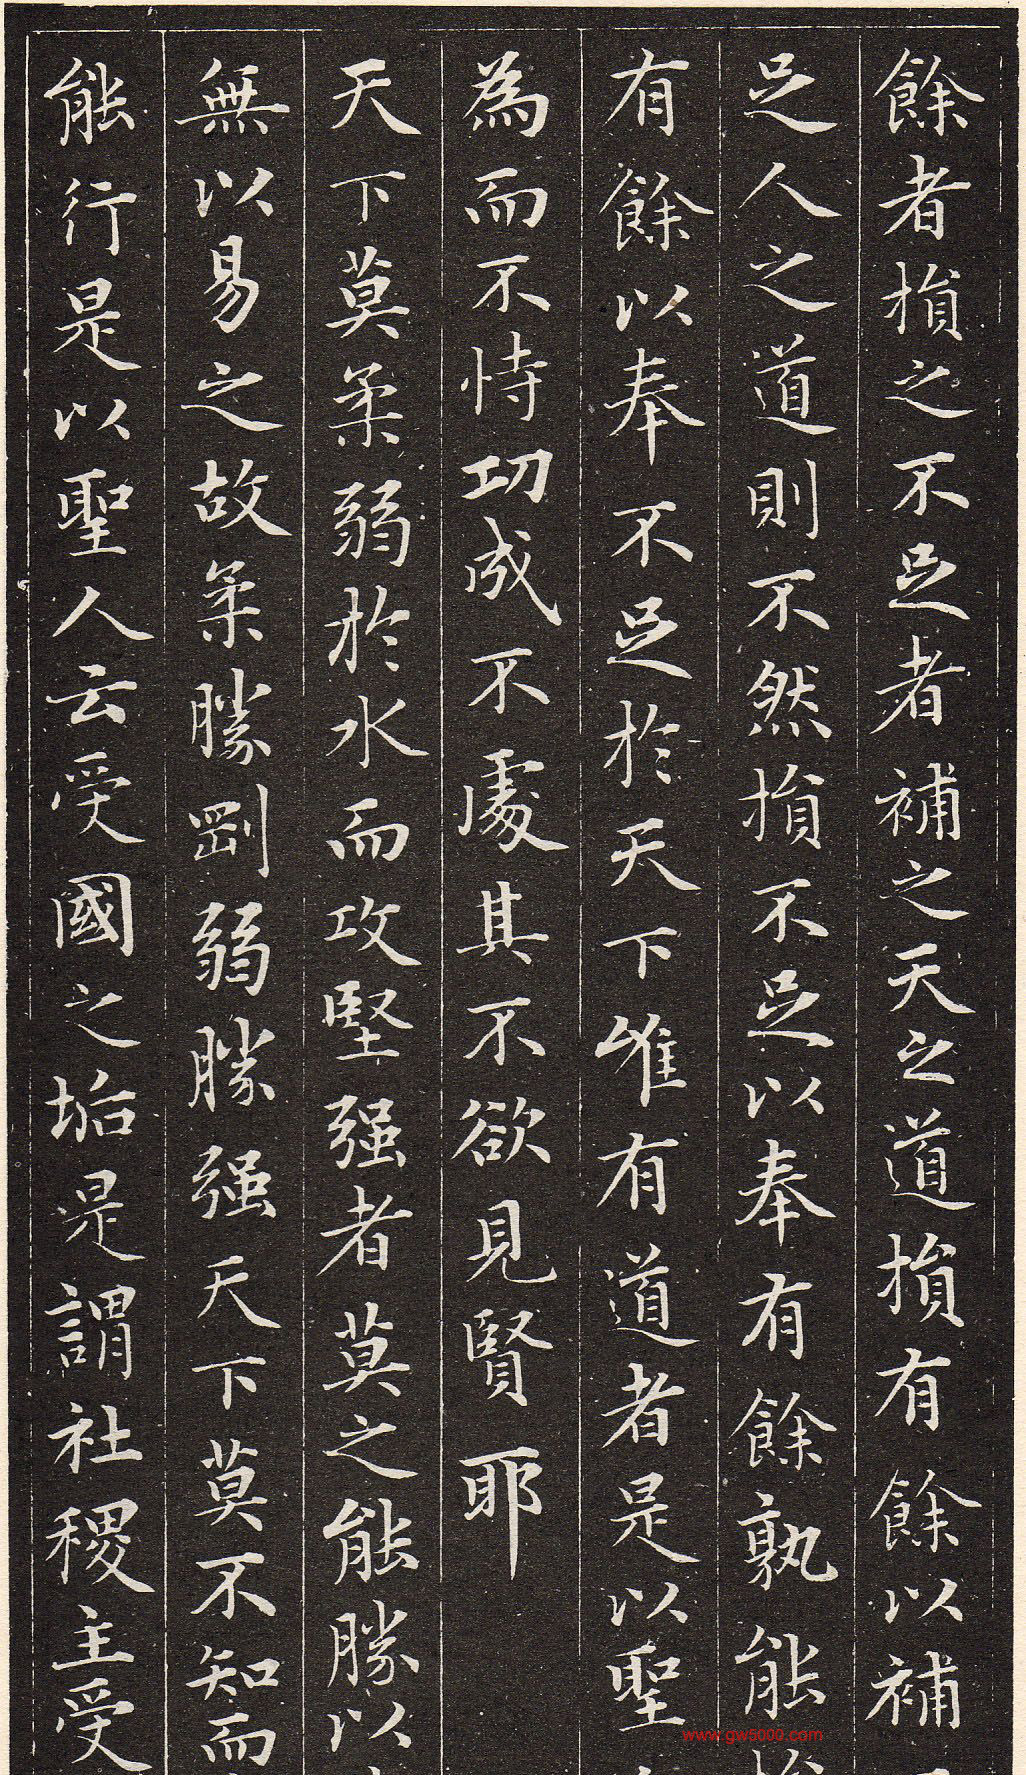 餘者損之不足者補之天之道損有餘以補
足人之道則不然損不足以奉有餘孰能
有餘以奉不足於天下唯有道者是以聖
為而不恃功成不處其不欲見賢耶
天下莫柔弱於水而攻堅强者莫之能勝以
無以易之故柔勝剛弱勝强天下莫不知而
能行是以聖人云受國之垢是謂社稷主受
www.gw5000.com